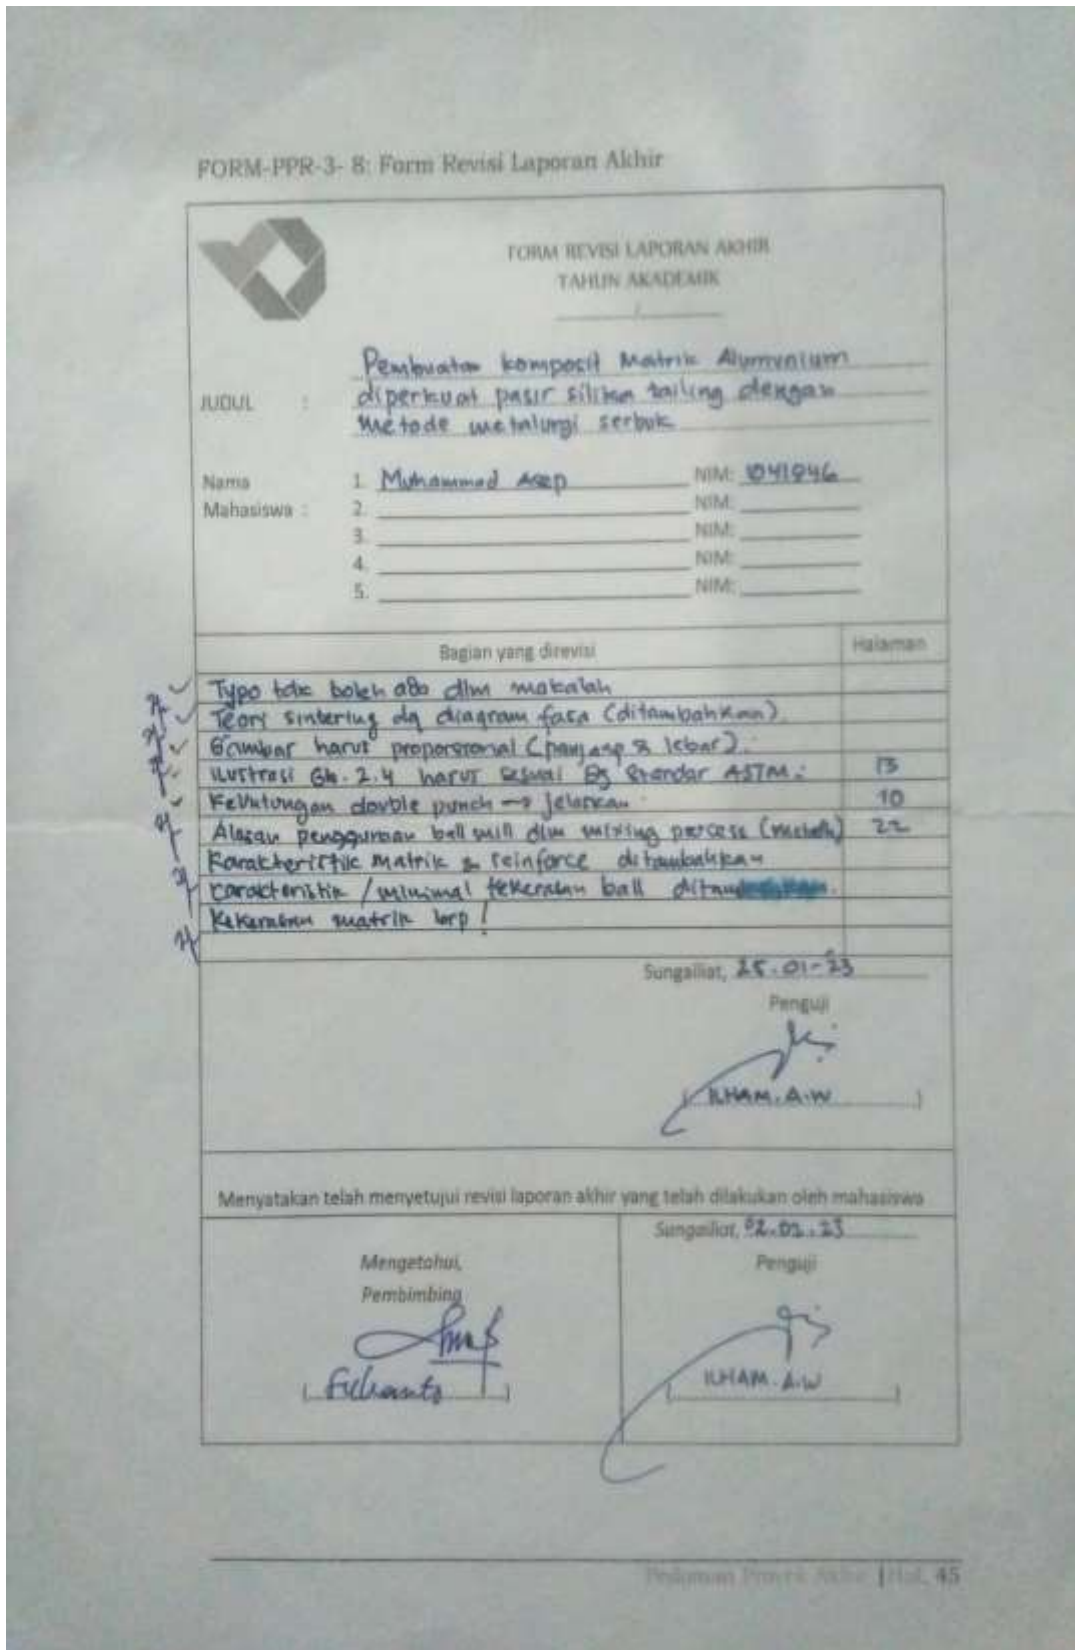 FORM-PPR-3- 8: Form Revisi Laporan Akhir
FORM REVISI LAPORAN AKHIR
TAHUN AKADEMIK
/
JUDUL :
Pembuatan komposit Matrik Alumunium
diperkuat pasir silika tailing dengan
Metode metalurgi serbuk
Nama Mahasiswa :
1. Muhammad Asep NIM: 1041846
2. NIM:
3. NIM:
4. NIM:
5. NIM:
Bagian yang direvisi Halaman
Typo tdk boleh ada dlm makalah
Teori sintering dg diagram fasa (ditambahkan)
Gambar harus proporsional (panjang & lebar)
Ilustrasi Gb. 2.4 harus sesuai dg Standar ASTM 13
Keuntungan double punch → jelaskan 10
Alasan penggunaan ball mill dlm mixing process 22
Karakteristik Matrik & reinforce ditambahkan
Karakteristik / minimal kekerasan ball
Kekerasan matrik brp!
Sungailiat, 25-01-23
Penguji
ILHAM. A.W
Menyatakan telah menyetujui revisi laporan akhir yang telah dilakukan oleh mahasiswa
Sungailiat, 02.02.23
Mengetahui,
Pembimbing
Penguji
ILHAM. A.W
Pedoman Proyek Akhir | Hal. 45